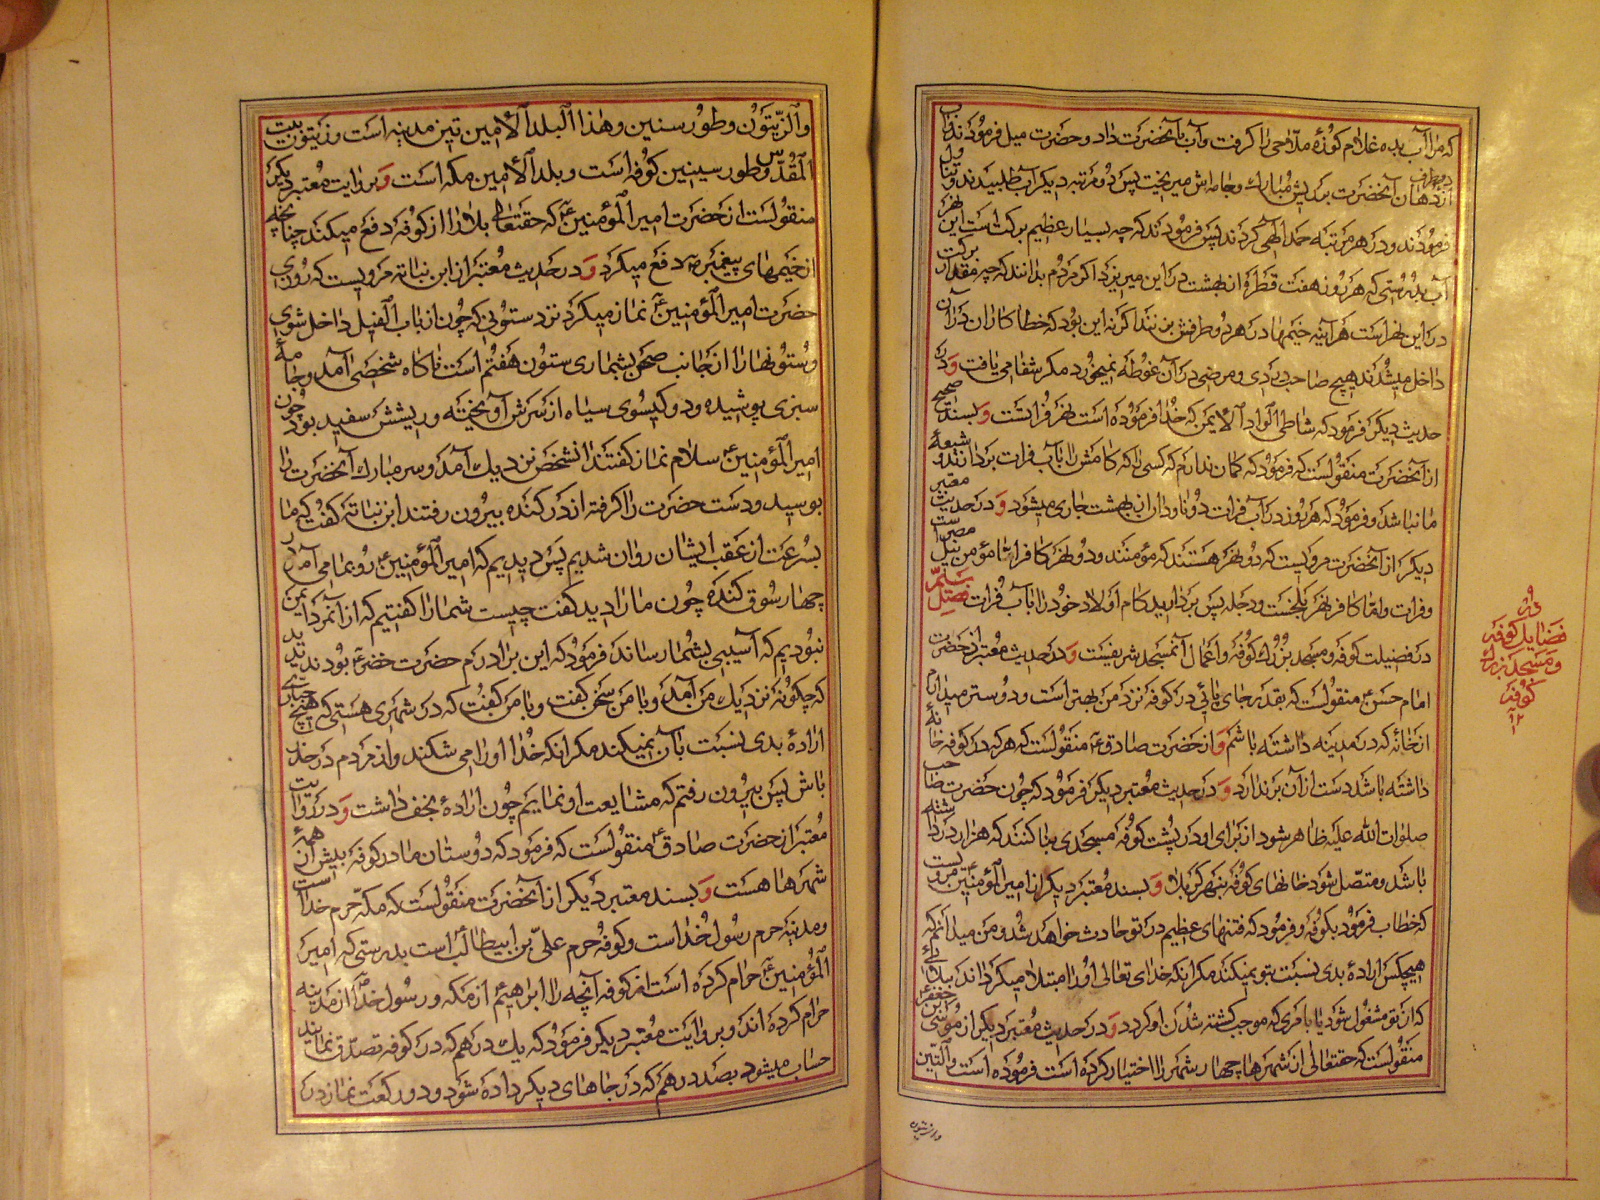 که مرا آب بده غلام کوزهٔ ملاحی را گرفت و آب بآنحضرت داد و حضرت میل فرمودند و آب
از دهان آنحضرت بر ریش مبارك و جامه‌اش میریخت پس دو مرتبه دیگر آب طلبیدند و تناول
فرمودند و در هر مرتبه حمد الهی کردند پس فرمودند که چه بسیار عظیم برکت است این نهر
آب بدرستی که هر روز هفت قطره از بهشت در این میریزد اگر مردم بدانند که چه مقدار برکت
در این نهر است هر آینه خیمها در هر دو طرفش بزنند اگر نه این بود که خطاکاران در آن
داخل میشدند هیچ صاحب دردی و مرضی در آن غوطه نمیخورد مگر شفا می یافت و در
حدیث دیگر فرمود که شاطئ الواد الأیمن که خدا فرموده است نهر فراتست و بسند صحیح
از آنحضرت منقولست که فرمود که گمان ندارم که کسی را که کامش را بآب فرات بردارند و شیعهٔ
ما نباشد و فرمود که هر روز در آب فرات دو ناودان از بهشت جاری میشود و در حدیث معتبر
دیگر از آنحضرت مرویست که دو نهر هستند که مؤمنند و دو نهر کافر اما مؤمن نیل مصر است
و فرات و اما کافر نهر بلخست و دجله پس بردارید کام اولاد خود را بآب فرات فصل
در فضیلت کوفه و مسجد بزرگ کوفه و اعمال آنمسجد شریفست و در حدیث معتبر از حضرت
امام حسن ع منقولست که بقدر جای پائی در کوفه نزد من بهتر است و دوستر میدارم
از خانه که در مدینه داشته باشم و از حضرت صادق ع منقولست که هر که در کوفه خانهٔ
داشته باشد دست از آن برندارد و در حدیث معتبر دیگر فرمود که چون حضرت صاحب
صلوات الله علیه ظاهر شود از برای او در پشت کوفه مسجدی بنا کنند که هزار در داشته
باشد و متصل شود خانهای کوفه بنهر کربلا و بسند معتبر دیگر از امیر المؤمنین مرویست
که خطاب فرمود بکوفه و فرمود که فتنهای عظیم در تو حادث خواهد شد و من میدانم که
هیچکس ارادهٔ بدی نسبت بتو نمیکند مگر انکه خدای تعالی او را مبتلا میگرداند ببلائی
که از تو مشغول شود یا بامری که موجب کشته شدن او گردد و در حدیث معتبر دیگر از موسی بن جعفر ع
منقولست که حقتعالی از شهرها چهار شهر را اختیار کرده است فرموده است والتین
والزیتون
در
فضایل کوفه
و مسجد بزرگ
کوفه
۱۲
والزیتون و طور سنین و هذا البلد الأمین تین مدینه است و زیتون بیت
المقدس و طور سینین کوفه است و بلد الأمین مکه است و بروایت معتبر دیگر
منقولست از حضرت امیر المؤمنین ع که حقتعالی بلا را از کوفه دفع میکند چنانچه
از خیمهای پیغمبر ص دفع میکرد و در حدیث معتبر از ابن نباته مرویست که روزی
حضرت امیر المؤمنین ع نماز میکرد نزد ستونی که چون از باب الفیل داخل شوی
و ستونها را از جانب صحن بشماری ستون هفتم است ناگاه شخصی آمد و جامهٔ
سبزی پوشیده و دو گیسوی سیاه از سرش آویخته و ریشش سفید بود چون
امیر المؤمنین ع سلام نماز گفتند انشخص نزدیك آمد و سر مبارك آنحضرت را
بوسید و دست حضرت را گرفته از در کنده بیرون رفتند ابن نباته گفت که ما
بسرعت از عقب ایشان روان شدیم پس دیدیم که امیر المؤمنین ع رو بما می آمد در
چهار سوق کنده چون ما را دید گفت چیست شما را گفتیم که از آنمرد ایمن
نبودیم که آسیبی بشما رساند فرمود که این برادرم حضرت خضر ع بود ندیدید
که چگونه نزدیك من آمد و با من سخن گفت و با من گفت که در شهری هستی که هیچ جباری
ارادهٔ بدی نسبت بآن نمیکند مگر انکه خدا او را می شکند و از مردم در حذر
باش پس بیرون رفتم که مشایعت او نمایم چون ارادهٔ نجف داشت و در روایت
معتبر از حضرت صادق ع منقولست که فرمود که دوستان ما در کوفه بیش از همهٔ
شهرها هست و بسند معتبر دیگر از آنحضرت منقولست که مکه حرم خدا است
و مدینه حرم رسول خدا است و کوفه حرم علی بن ابیطالب است بدرستی که امیر
المؤمنین ع حرام کرده است از کوفه آنچه را ابراهیم از مکه و رسول خدا ص از مدینه
حرام کرده‌اند و بروایت معتبر دیگر فرمود که یك درهم که در کوفه تصدق نمایند
حساب میشود بصد درهم که در جاهای دیگر داده شود و دو رکعت نماز در